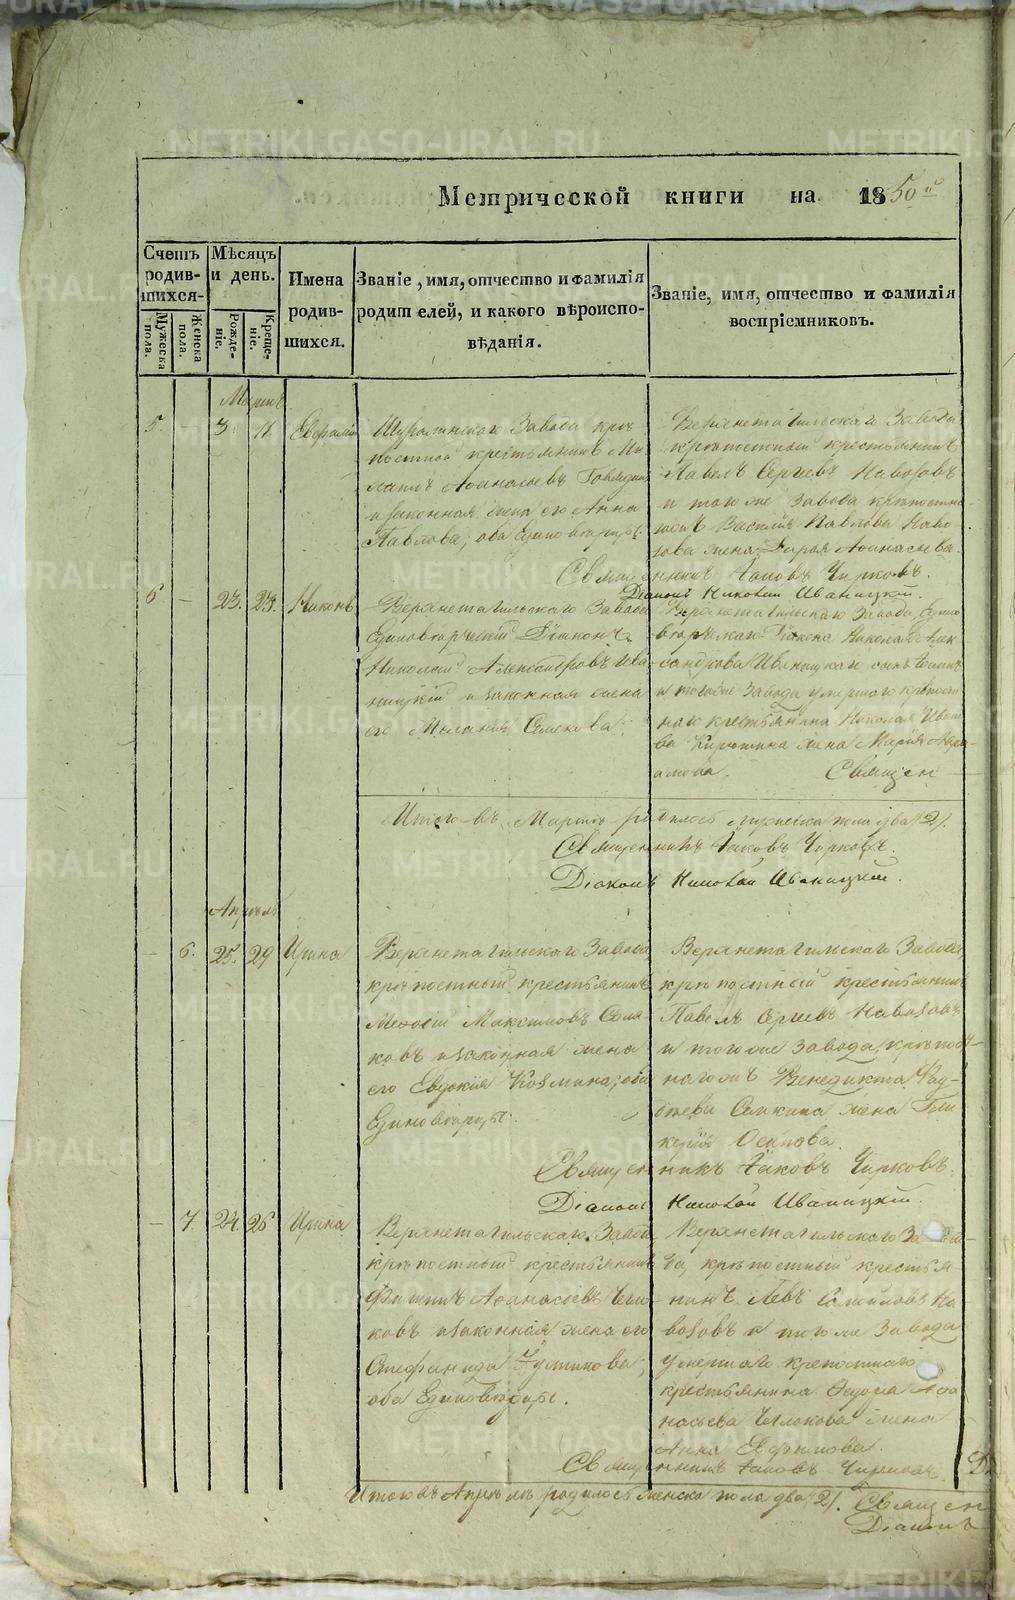 Метрической книги на 1850й
Счетъ родив-шихся-
Мужеска пола.
Женска пола.
Мѣсяцъ и день.
Рожде-ніе.
Креще-ніе.
Имена родив-шихся.
Званіе, имя, отчество и фамилія
родителей, и какого вѣроиспо-
вѣданія.
Званіе, имя, отчество и фамилія
воспріемниковъ.
Мартъ
5. - 3. 11.
Шуралинскаго Завода крѣ-
постной крестьянинъ Ми-
хаилъ Аѳанасьевъ
и законная жена его Анна
Павлова; оба Единовѣрцы.
Верхнетагильскаго Завода
крѣпостный крестьянинъ
Павелъ Сергѣевъ Навозовъ
и того же Завода крѣпостна-
Василія Павлова Наво-
зова жена Дарья Аѳанасьева.
Священникъ Іаковъ Чирковъ.
Діаконъ Николай Иваницкій.
6 - 23. 23. Никонъ
Верхнетагильскаго Завода
Единовѣрческій Діаконъ
Николай Александровъ Ива-
ницкій и законная жена
его Меланія Семенова.
Верхнетагильскаго Завода, Едино-
вѣрческаго Діакона Николая Алек-
сандрова Иваницкаго сынъ
и тогоже Завода умершаго крѣпост-
наго крестьянина Николая Ивано-
ва жена Марія Авра-
амова. Священ
Итого въ Мартѣ родилось мужеска пола два /2/.
Священникъ Іаковъ Чирковъ.
Діаконъ Николай Иваницкій.
Апрѣль
- 6. 25. 29 Ирина
Верхнетагильскаго Завода
крѣпостный крестьянинъ
Меѳодій Максимовъ Сема-
ковъ и законная жена
его Евдокія Козмина; оба
Единовѣрцы.
Верхнетагильскаго Завода
крѣпостный крестьянинъ
Павелъ Сергѣевъ Навозовъ
и того же Завода крѣпост-
Венедикта Фад-
деева Семкина жена Гли-
керія Осипова.
Священникъ Іаковъ Чирковъ.
Діаконъ Николай Иваницкій.
- 7. 24 26 Ирина
Верхнетагильскаго Завода
крѣпостный крестьянинъ
Филипъ Аѳанасьевъ
и законная жена его
Стефанида Іустинова;
оба Единовѣрцы.
Верхнетагильскаго Заво-
да, крѣпостный крестья-
нинъ Левъ Самойловъ На-
возовъ и того же Завода
умершаго крепостнаго
крестьянина Ѳедора Аѳа-
насьева жена
Анна Ефимова.
Священникъ Іаковъ Чирковъ. Д
Итого въ Апрѣлѣ родилось женска пола два /2/. Священ
Діаконъ
METRIKI.GASO-URAL.RU